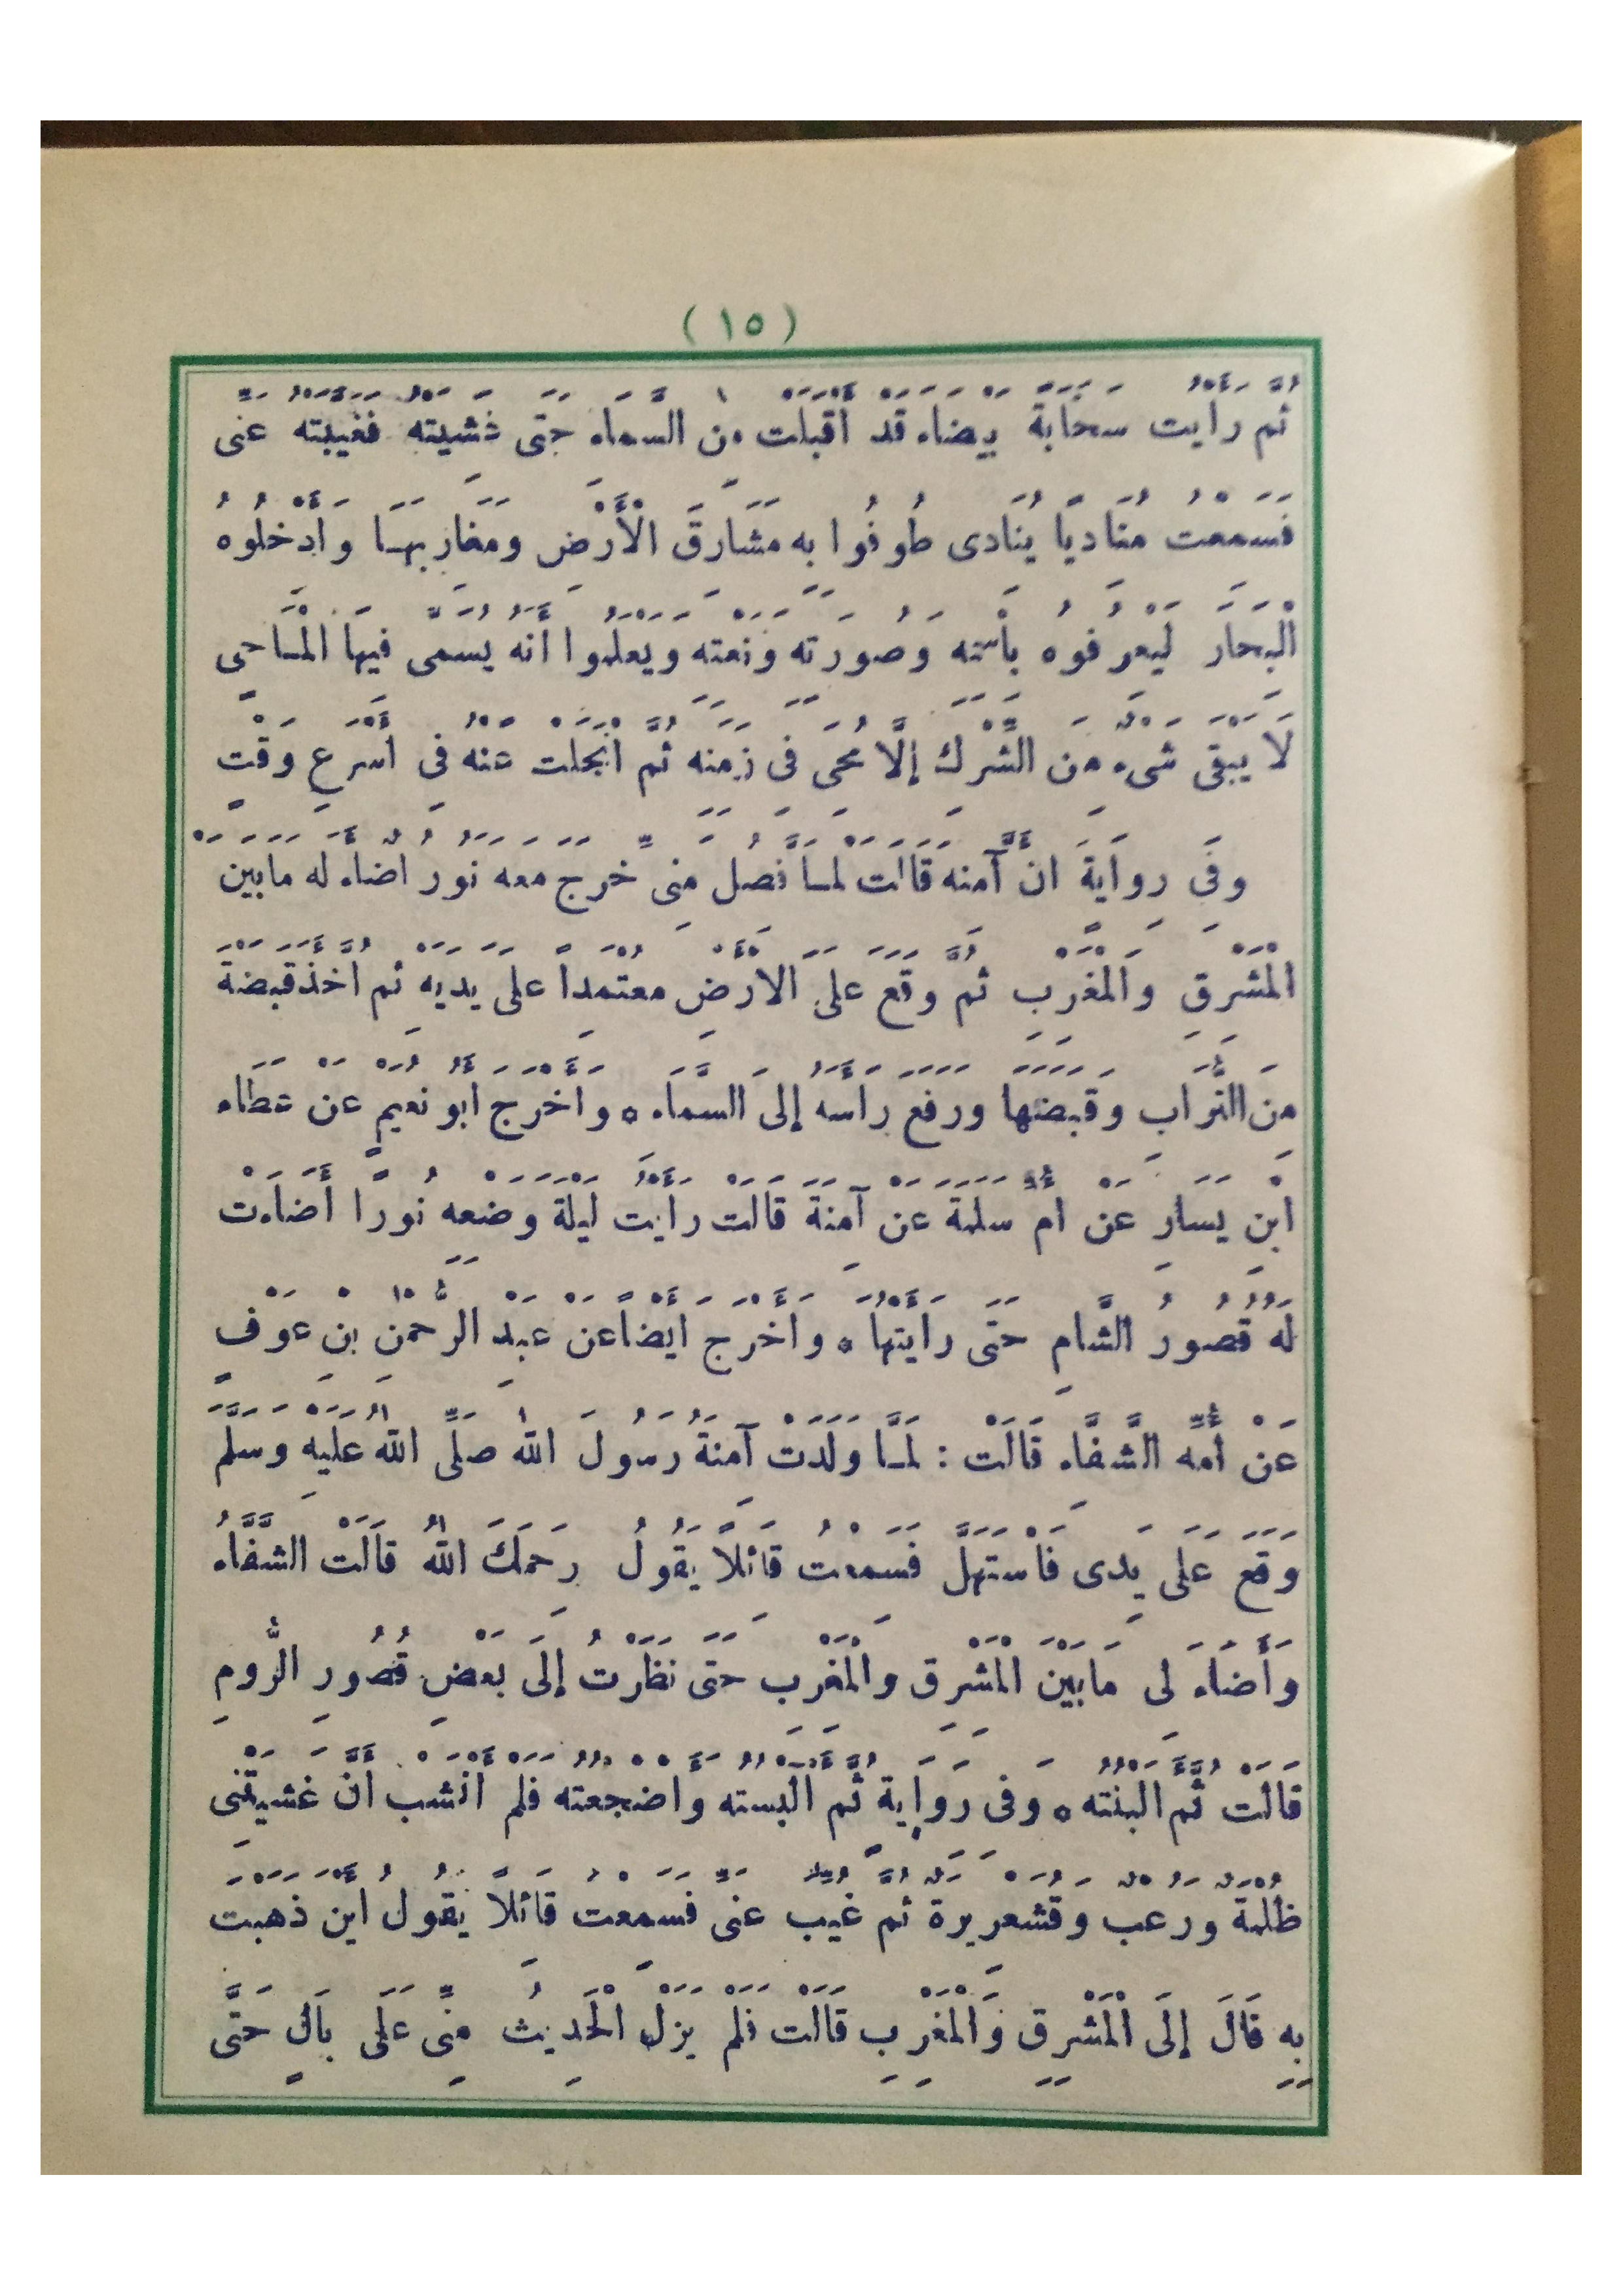 ( ١٥ )
ثُمَّ رَأَيْتُ سَحَابَةً بَيْضَاءَ قَدْ أَقْبَلَتْ مِنَ السَّمَاءِ حَتَّى غَشِيَتْهُ فَغَيَّبَتْهُ عَنِّى
فَسَمِعْتُ مُنَادِيًا يُنَادِى طُوفُوا بِهِ مَشَارِقَ الْأَرْضِ وَمَغَارِبَهَا وَأَدْخِلُوهُ
الْبِحَارَ لِيَعْرِفُوهُ بِاسْمِهِ وَصُورَتِهِ وَنَعْتِهِ وَيَعْلَمُوا أَنَّهُ يُسَمَّى فِيهَا الْمَاحِى
لَا يَبْقَى شَىْءٌ مِنَ الشِّرْكِ إِلَّا مُحِىَ فِى زَمَنِهِ ثُمَّ انْجَلَتْ عَنْهُ فِى أَسْرَعِ وَقْتٍ
وَفِى رِوَايَةٍ أَنَّ آمِنَةَ قَالَتْ لَمَّا فُصِلَ مِنِّى خَرَجَ مَعَهُ نُورٌ أَضَاءَ لَهُ مَا بَيْنَ
الْمَشْرِقِ وَالْمَغْرِبِ ثُمَّ وَقَعَ عَلَى الْأَرْضِ مُعْتَمِدًا عَلَى يَدَيْهِ ثُمَّ أَخَذَ قَبْضَةً
مِنَ التُّرَابِ وَقَبَضَهَا وَرَفَعَ رَأْسَهُ إِلَى السَّمَاءِ ه وَأَخْرَجَ أَبُو نُعَيْمٍ عَنْ عَطَاءِ
ابْنِ يَسَارٍ عَنْ أُمِّ سَلَمَةَ عَنْ آمِنَةَ قَالَتْ رَأَيْتُ لَيْلَةَ وَضْعِهِ نُورًا أَضَاءَتْ
لَهُ قُصُورُ الشَّامِ حَتَّى رَأَيْتُهَا ه وَأَخْرَجَ أَيْضًا عَنْ عَبْدِ الرَّحْمٰنِ بْنِ عَوْفٍ
عَنْ أُمِّهِ الشَّفَّاءِ قَالَتْ : لَمَّا وَلَدَتْ آمِنَةُ رَسُولَ اللهِ صَلَّى اللهُ عَلَيْهِ وَسَلَّمَ
وَقَعَ عَلَى يَدِى فَاسْتَهَلَّ فَسَمِعْتُ قَائِلًا يَقُولُ رَحِمَكَ اللهُ قَالَتْ الشَّفَّاءُ
وَأَضَاءَ لِى مَا بَيْنَ الْمَشْرِقِ وَالْمَغْرِبِ حَتَّى نَظَرْتُ إِلَى بَعْضِ قُصُورِ الرُّومِ
قَالَتْ ثُمَّ أَلْبَنْتُهُ ه وَفِى رِوَايَةٍ ثُمَّ أَلْبَسْتُهُ وَأَضْجَعْتُهُ فَلَمْ أَنْشَبْ أَنْ غَشِيَتْنِى
ظُلْمَةٌ وَرُعْبٌ وَقُشَعْرِيرَةٌ ثُمَّ غُيِّبَ عَنِّى فَسَمِعْتُ قَائِلًا يَقُولُ أَيْنَ ذَهَبْتَ
بِهِ قَالَ إِلَى الْمَشْرِقِ وَالْمَغْرِبِ قَالَتْ فَلَمْ يَزَلِ الْحَدِيثُ مِنِّى عَلَى بَالٍ حَتَّى